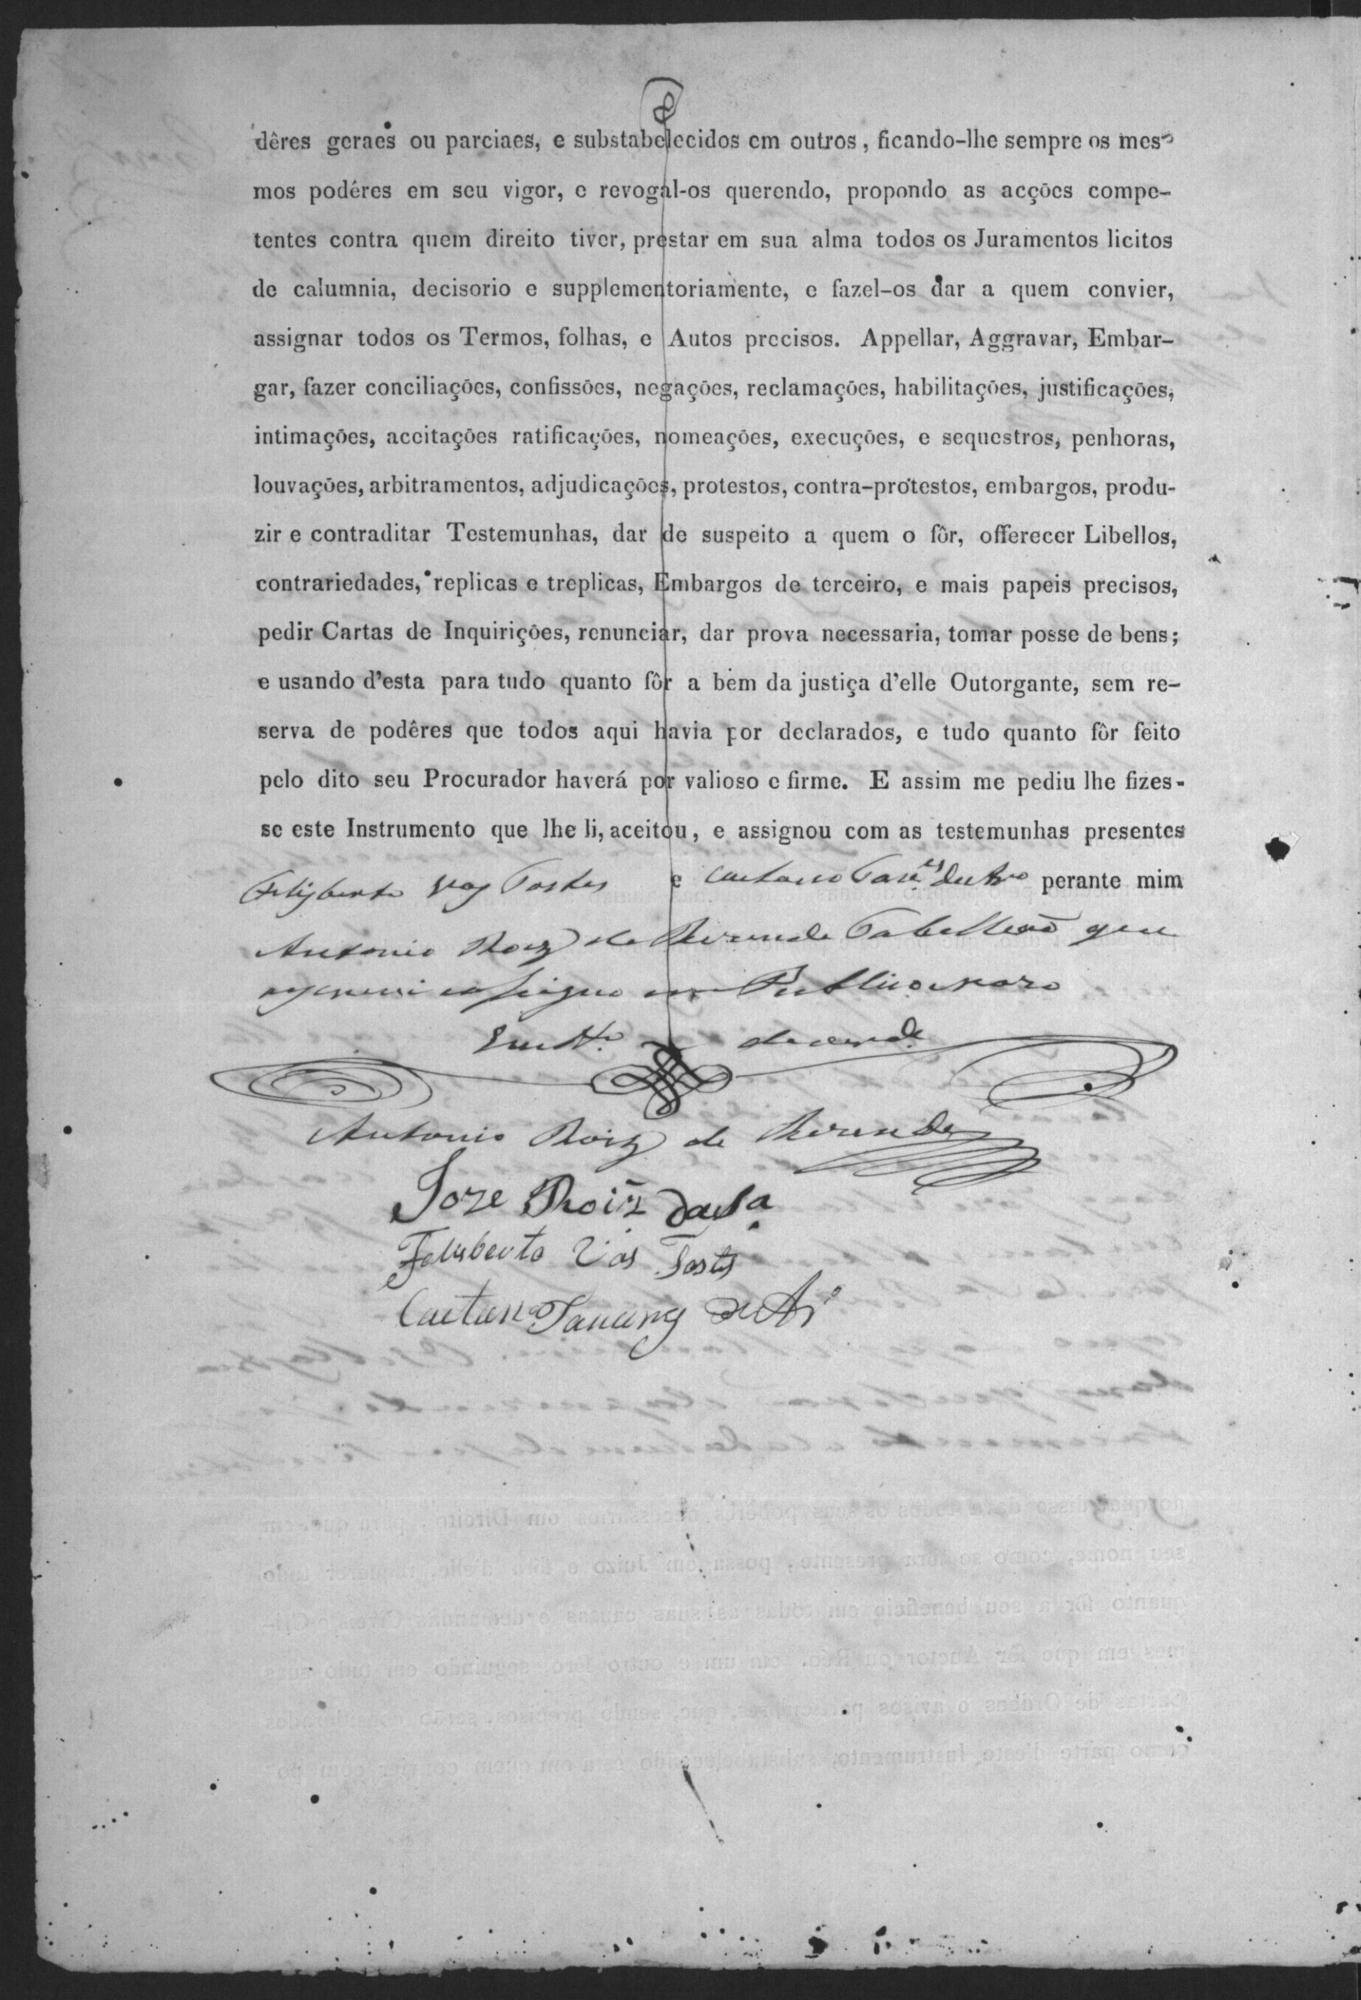 dêres geraes ou parciaes, e substabelecidos em outros, ficando-lhe sempre os mes-
mos podêres em seu vigor, e revogal-os querendo, propondo as acções compe-
tentes contra quem direito tiver, prestar em sua alma todos os Juramentos licitos
de calumnia, decisorio e supplementoriamente, e fazel-os dar a quem convier,
assignar todos os Termos, folhas, e Autos precisos. Appellar, Aggravar, Embar-
gar, fazer conciliações, confissões, negações, reclamações, habilitações, justificações,
intimações, acceitações ratificações, nomeações, execuções, e sequestros, penhoras,
louvações, arbitramentos, adjudicações, protestos, contra-protestos, embargos, produ-
zir e contraditar Testemunhas, dar de suspeito a quem o fôr, offerecer Libellos,
contrariedades, replicas e treplicas, Embargos de terceiro, e mais papeis precisos,
pedir Cartas de Inquirições, renunciar, dar prova necessaria, tomar posse de bens;
e usando d'esta para tudo quanto fôr a bem da justiça d'elle Outorgante, sem re-
serva de podêres que todos aqui havia por declarados, e tudo quanto fôr feito
pelo dito seu Procurador haverá por valioso e firme. E assim me pediu lhe fizes-
se este Instrumento que lhe li, aceitou, e assignou com as testemunhas presentes
Felisberto Vas Tostes e Caetano perante mim
Antonio Roiz de Rezende Tabelleão que
escrevi e assigno em Publico e razo
de verd.e
Antonio Roiz de Rezende
Joze Roiz
Felisberto Vas Tostes
Caetano